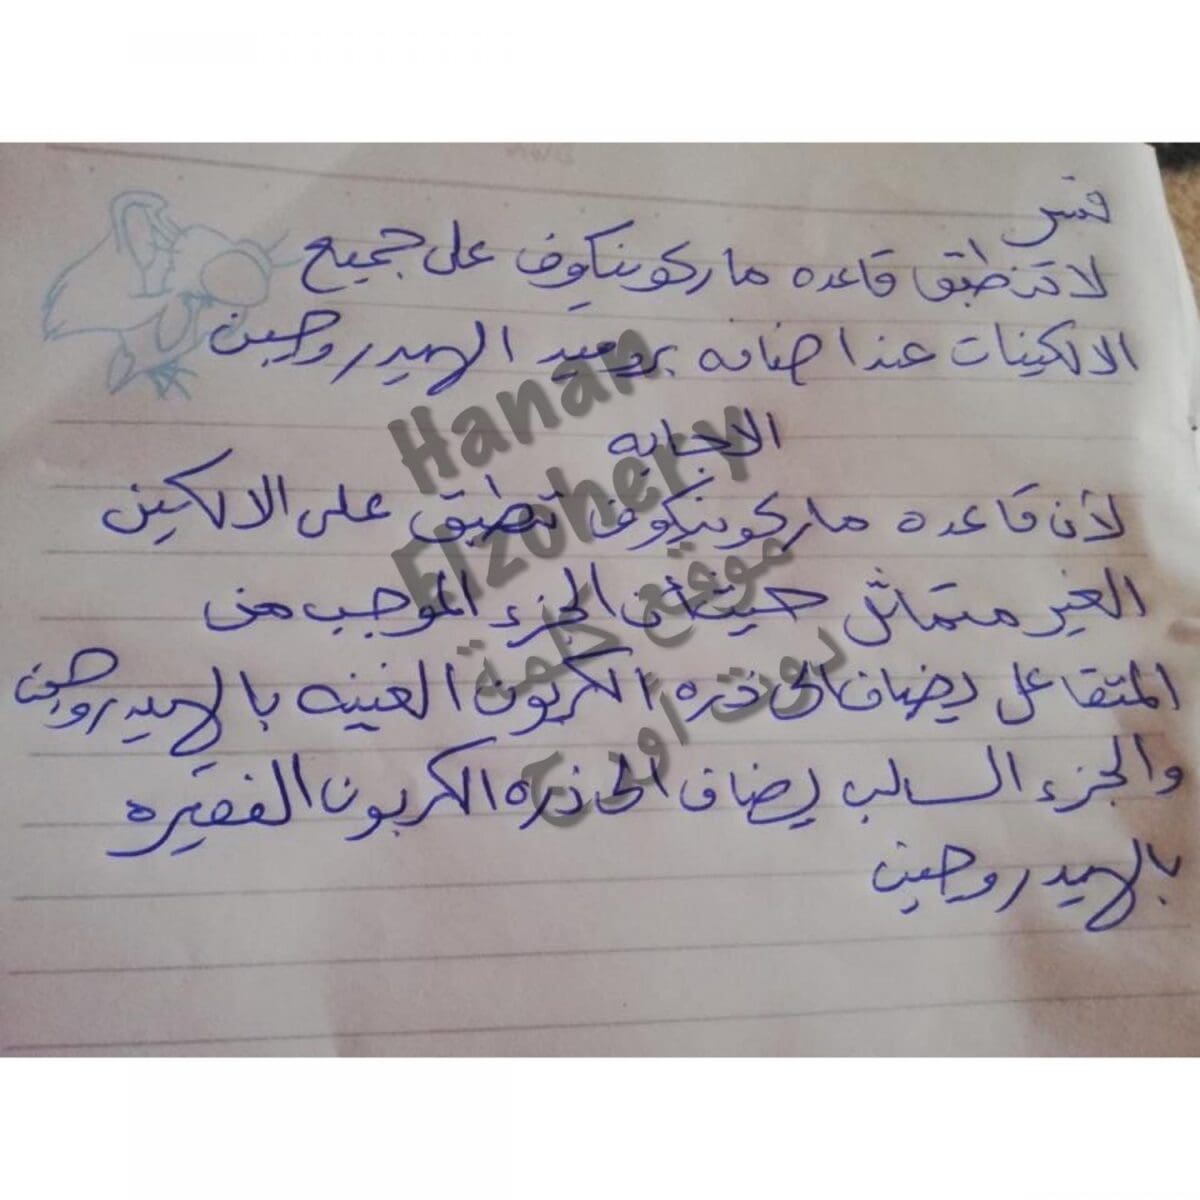 فسر
لا تنطبق قاعده ماركونيكوف على جميع
الالكينات عند اضافه بروميد الهيدروجين
الاجابه
لأن قاعده ماركونيكوف تنطبق على الالكين
الغير متماثل حيث أن الجزء الموجب من
المتفاعل يضاف الى ذره الكربون الغنيه بالهيدروجين
والجزء السالب يضاف الى ذره الكربون الفقيره
بالهيدروجين
Hanan
Elzohery
موقع كلمة
دوت أورج